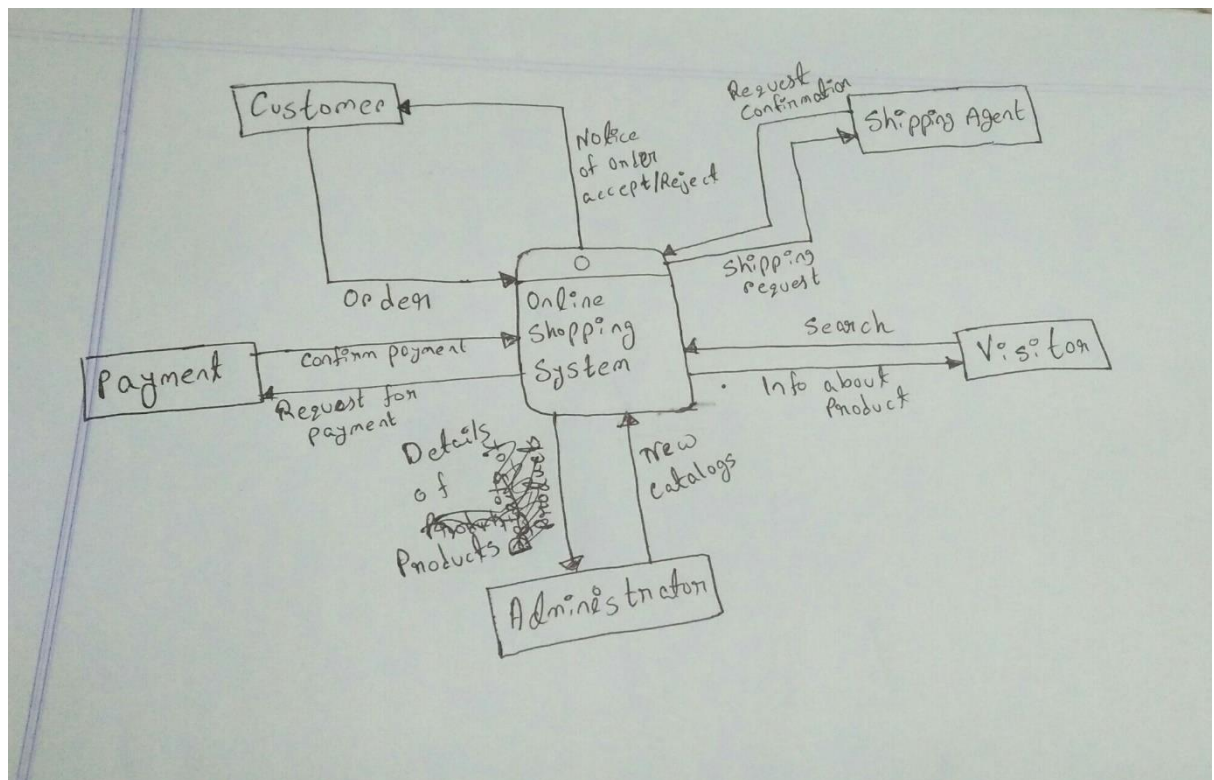 Customer
Notice
of order
accept/Reject
Request
Confirmation
Shipping Agent
Shipping
request
Order
O
Online
Shopping
System
Search
Visitor
Info about
Product
Payment
Confirm payment
Request for
payment
Details
of
Products
New
Catalogs
Administrator